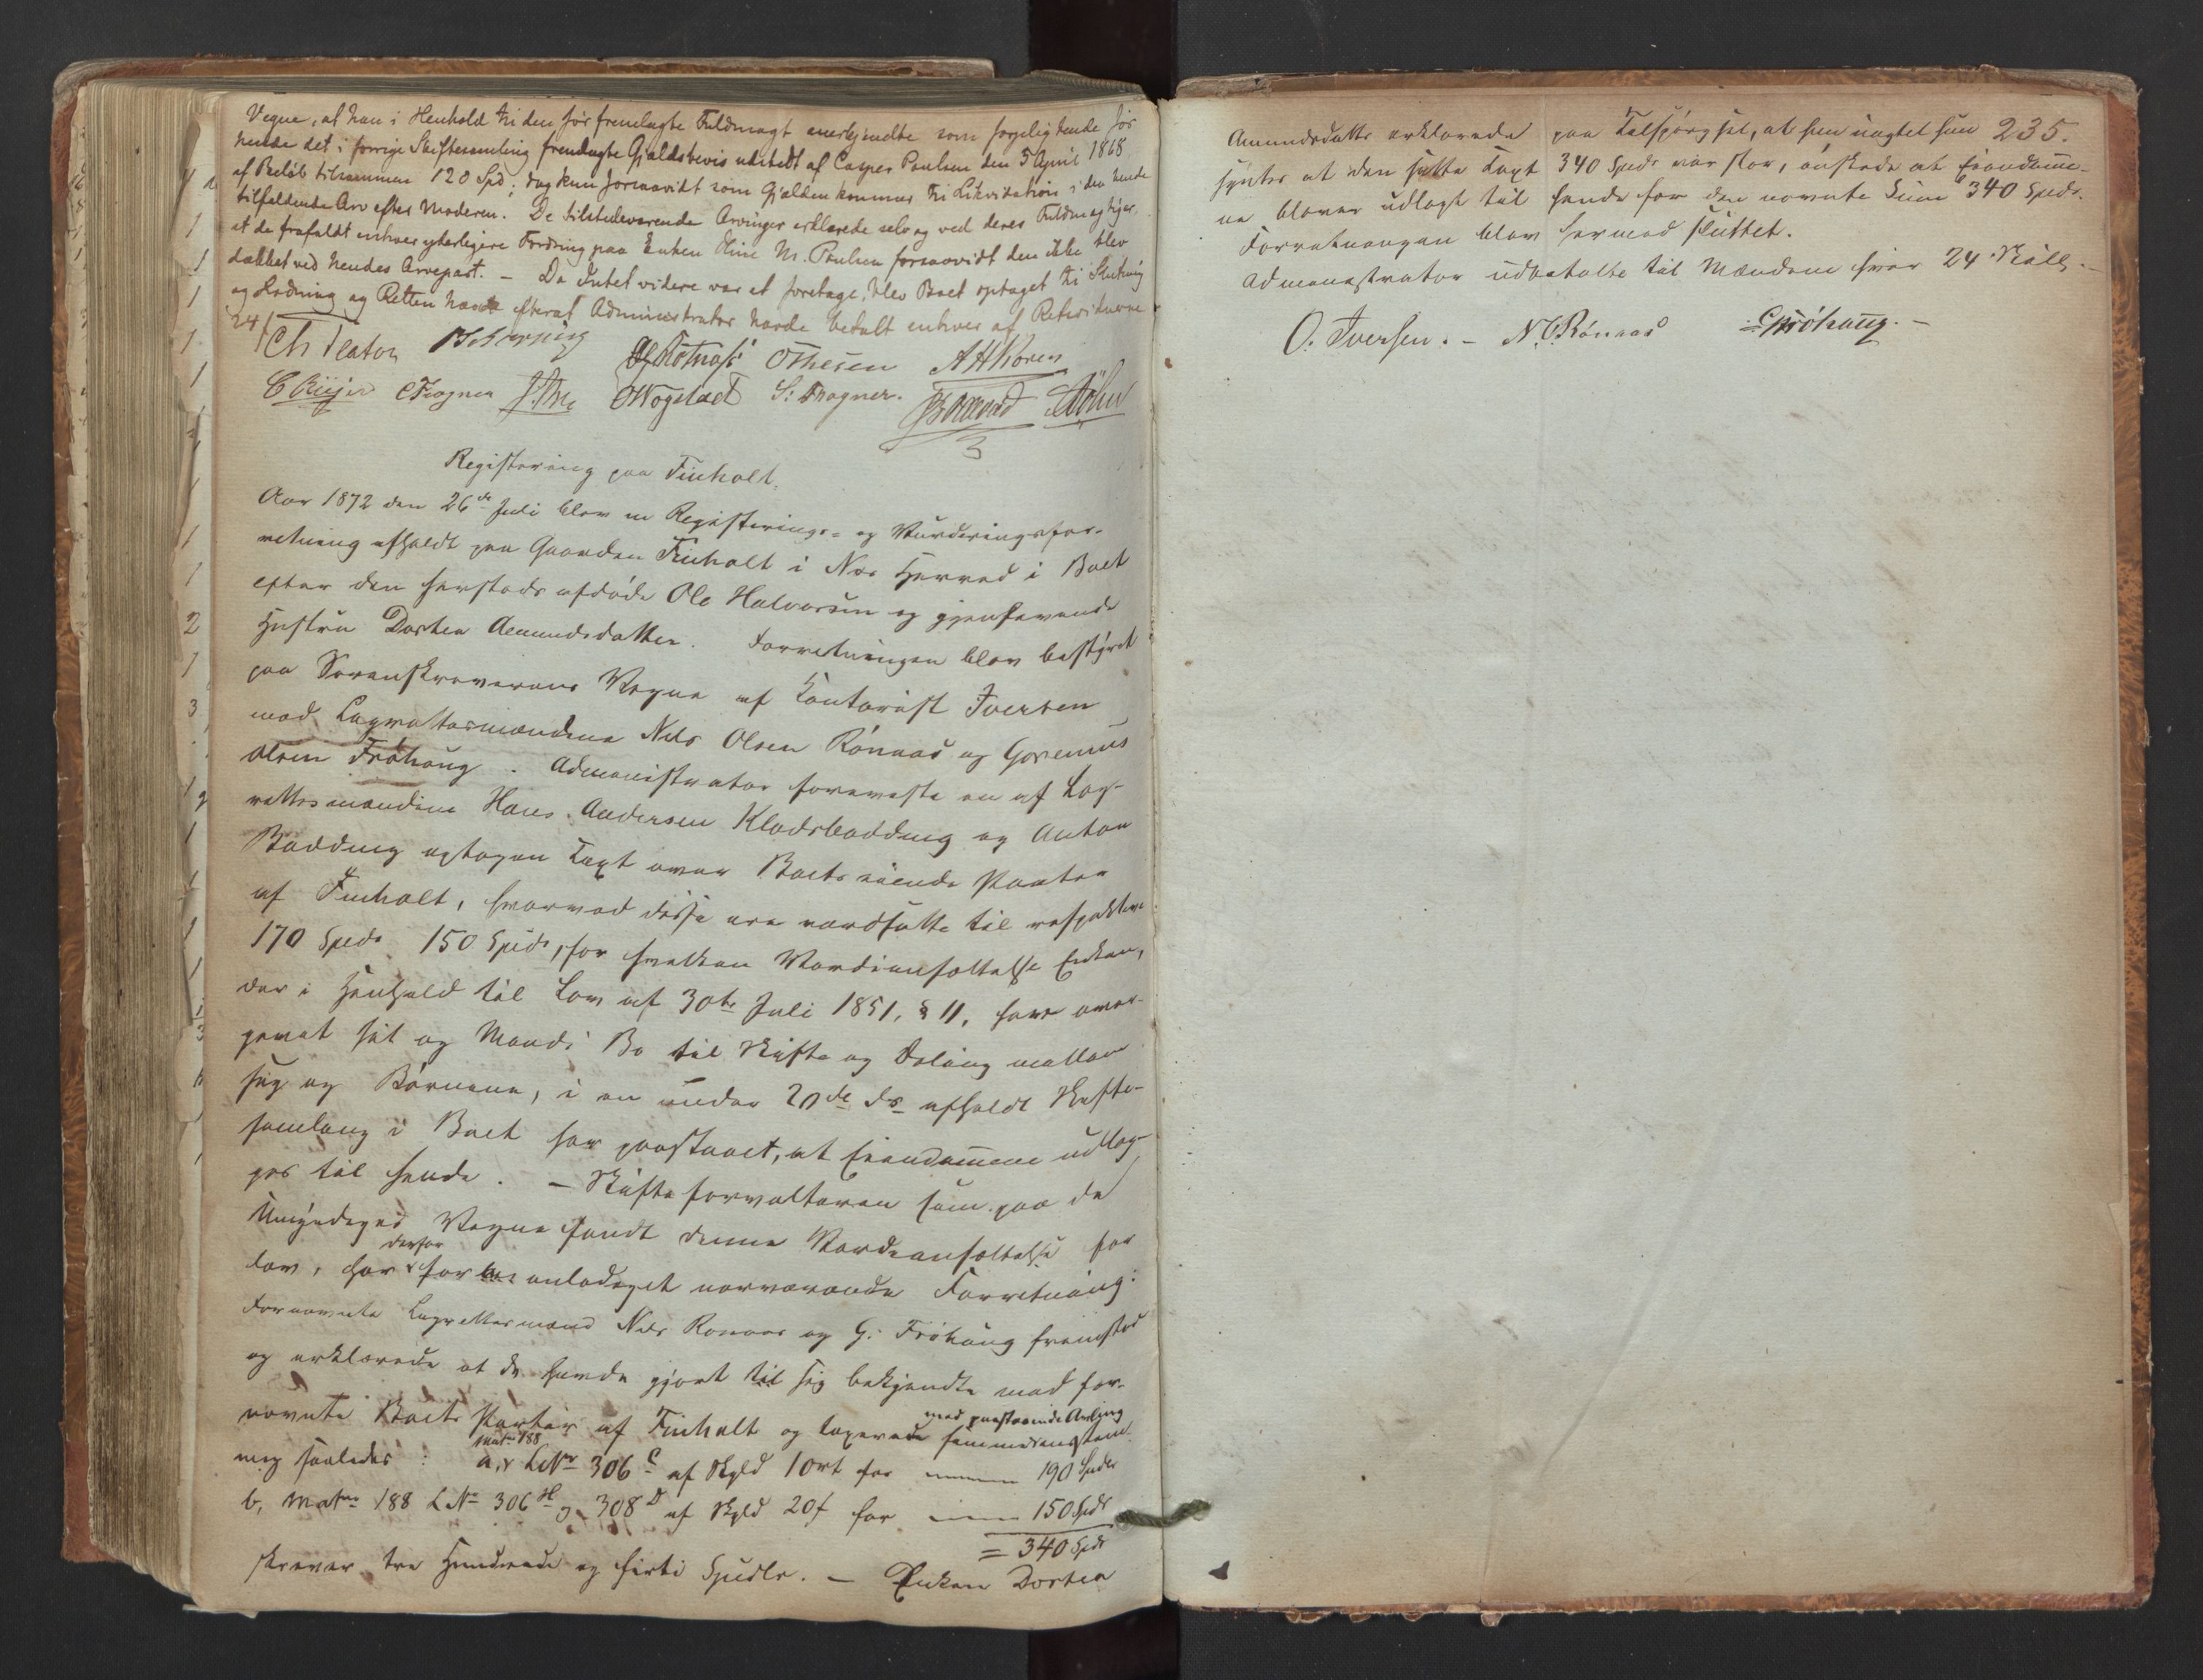 Vegne, at han i Henhold til den før fremlagte Fuldmagt anerkjendte som forpligtende for
hende det i forrige Skiftesamling fremlagte Gjældsbevis udstedt af Casper Paulsen den 5 April 1868
af Beløb tilsammen 120 Spd; dog kun forsaavidt som Gjælden kommer til Likvidation i den hende
tilfaldende Arv efter Moderen. De tilstedeværende Arvinger erklærede selv og ved deres Fuldmægtiger,
at de frafaldt enhver yderligere Fordring paa Enken M. Paulsen forsaavidt den ikke blev
dækket ved hendes Arvepart. — Da Intet videre var at foretage, blev Boet optaget til Slutning
og Lodning og Retten hævet efterat Administrator havde betalt enhver af Retsvidnerne
24 ſ
Ch Platou OThesen AHKoren
CFrogner OWogstad S: Frogner.
Registering paa Finholt.
Aar 1872 den 26de Juli blev en Registerings- og Vurderingsfor-
retning afholdt paa Gaarden Finholt i Nes Herred i Boet
efter den hersteds afdøde Ole Halvorsen og gjenlevende
Hustru Dorthea Amundsdatter. Forretningen blev bestyret
paa Sorenskriverens Vegne af Kontorist Iversen
med Lagrettesmændene Nils Olsen Rønaas og Gorenius
Olsen Frøhaug. Administrator foreviste en af Lag-
rettesmændene Hans Andersen Klodsbødding og Anton
Bødding optagen Taxt over Boets eiende Parter
af Finholt, hvorved disse ere værdsatte til respektive
170 Spd 150 Spd, for hvilken Værdiansættelse Enken,
der i Henhold til Lov af 30te Juli 1851, § 11, har over-
givet sit og Mands Bo til Skifte og Deling mellem
sig og Børnene, i en under 20de ds afholdt Skifte-
samling i Boet har paastaaet, at Eiendommene udlæg-
ges til hende. — Skifteforvalteren som paa de
Umyndiges Vegne fandt denne Værdiansættelse for
lav, har derfor foranlediget nærværende Forretning:
Fornævnte Lagrettesmænd Nils Rønaas og G: Frøhaug fremstod
og erklærede at de havde gjort sig bekjendte med for-
nævnte Boets Parter af Finholt og taxerede samme med paastaaende Avling
saaledes: a, Matr 188 LNr 306 C af Skyld 1 ort for 190 Spdlr
b, MatNr 188 LNr 306 H og 308 D af Skyld 20 ſ for 150 Spd
= 340 Spd
skriver tre Hundrede og firti Spdlr. — Enken Dorthea
235.
Amundsdatter erklærede paa Tilspørgsel, at hun uagtet hun
syntes at den satte Taxt 340 Spd var stor, ønskede at Eiendomme-
ne bliver udlagt til hende for den nævnte Sum 340 Spd.
Forretningen blev hermed sluttet.
Administrator udbetalte til Mændene hver 24 Skill. —
O. Iversen. — N. O. Rønaas GFrøhaug. —